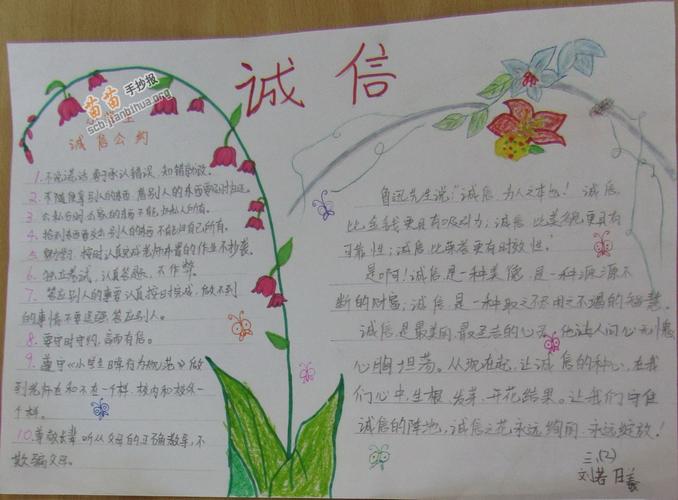 诚信
苗苗手抄报
scb.jianbihua.org
诚信公约
1.不说谎话勇于承认错误,知错就改。
2.不随便拿别人的东西,借别人的东西要及时归还。
3.公私分明,公家的东西不能归私人所有。
4.拾到东西要交出,别人的东西不能归自己所有。
5.按时认真完成老师布置的作业不抄袭。
6.独立考试,认真答题,不作弊。
7.答应别人的事要认真按时完成,做不到
的事情不要逞强答应别人。
8.要守时守约,言而有信。
9.遵守《小学生日常行为规范》做
到老师在和不在一个样,校内和校外一
个样。
10.尊敬长辈,听从父母的正确教导,不
欺骗父母。
鲁迅先生说:“诚信,为人之本也!诚信,
比金钱更具有吸引力;诚信,比美貌更具有
可靠性;诚信比荣誉更有时效性。”
是啊!诚信是一种美德,是一种源源不
断的财富,诚信,是一种取之不尽用之不竭的智慧。
诚信,是最美丽,最圣洁的心灵,他让人问心无愧,
心胸坦荡。从现在起,让诚信的种子,在我
们心中,生根,发芽,开花结果。让我们守住
诚信的阵地,诚信之花永远绚丽,永远绽放!
三.(2)
刘若曦